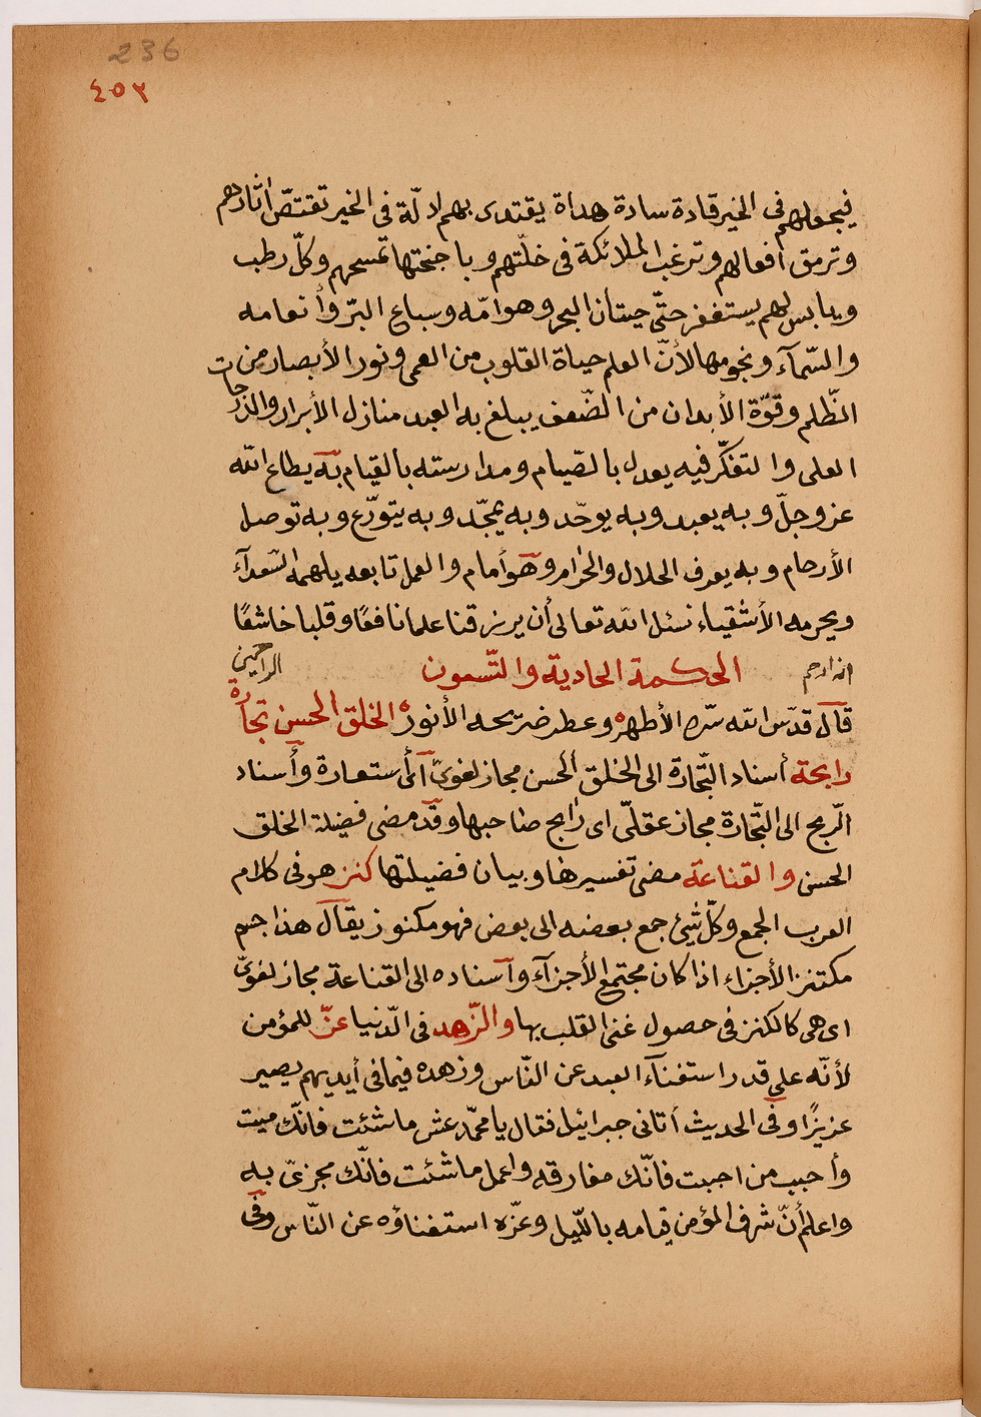 236
٤٥٢
فيجعلهم في الخير قادة سادة هداة يقتدى بهم ادلّة في الخير تقتصّ اثارهم
وترمق افعالهم وترغب الملائكة في خلّتهم وباجنحتها تمسحهم وكلّ رطب
ويابس لهم يستغفر حتّى حيتان البحر وهوامّه وسباع البرّ وأنعامه
والسّمآء ونجومها لأنّ العلم حياة القلوب من العمى ونور الأبصار من
الظّلم وقوّة الأبدان من الضّعف يبلغ به العبد منازل الأبرار والدّرجات
العلى والتفكّر فيه يعدل بالصيام ومدارسته بالقيام به يطاع الله
عز وجلّ وبه يعبد وبه يوحّد وبه يمجّد وبه يتورّع وبه توصل
الأرحام وبه يعرف الحلال والحرام وهو أمام والعمل تابعه يلهمه السّعدآء
ويحرمه الأشقياء نسئل الله تعالى أن يرزقنا علما نافعًا وقلبا خاشعًا
انه ارحم الراحمين
الحكمة الحادية والتّسعون
قال قدّس الله سّره الأطهر وعطر ضريحه الأنور الخلق الحسن تجارة
رابحة أسناد التّجارة الى الخلق الحسن مجاز لغويّ أى أستعارة وأسناد
الرّبح الى التّجارة مجاز عقلّى اى رابح صاحبها وقد مضى فضيلة الخلق
الحسن والقناعة مضى تفسيرها وبيان فضيلتها كنز هو في كلام
العرب الجمع وكلّ شئ جمع بعضه الى بعض فهو مكنوز يقال هذا جسم
مكتنز الأجزاء اذا كان مجتمع الأجزآء وآسناده الى القناعة مجاز لغويّ
اى هى كالكنز في حصول غنى القلب بها والزّهد في الدّنيا عزّ للمؤمن
لأنّه على قدر استغنآء العبد عن النّاس وزهده فيما في أيديهم يصير
عزيزًا وفى الحديث أتانى جبرائيل فقال يا محمّد عش ما شئت فانّك ميت
وأحبب من احببت فانّك مفارقه واعمل ما شئت فانّك مجزىّ به
واعلم أنّ شرف المؤمن قيامه باللّيل وعزّه استغناؤه عن النّاس وفى